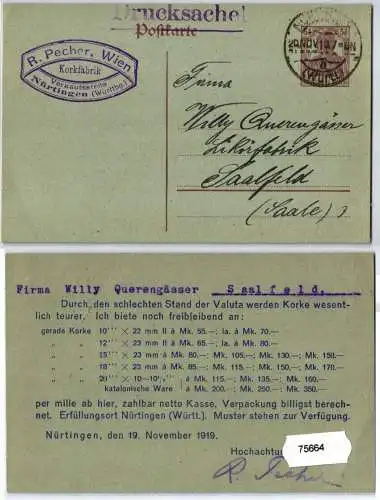 Drucksache!
Postkarte
R. Pecher, Wien
Korkfabrik
Verkaufsstelle
Nürtingen (Württbg.)
20 NOV 19
(WÜRTT)
Firma
Willy Querengässer
Likörfabrik
Saalfeld
(Saale)
Firma Willy Querengässer Saalfeld.
Durch den schlechten Stand der Valuta werden Korke wesent-
lich teurer. Ich biete noch freibleibend an:
gerade Korke 10''' × 22 mm II à Mk. 55.—; Ia. à Mk. 70.—
„ „ 12''' × 23 mm II à Mk. 65.—; Ia. à Mk. 80.—
„ „ 15''' × 23 mm à Mk. 80.—; Mk. 105.—; Mk. 130.—; Mk. 150.—
„ „ 18''' × 23 mm à Mk. 85.—; Mk. 115.—; Mk. 150.—; Mk. 170.—
„ „ 20''' × 10—10½''' à Mk. 120.—; Mk. 150.—; Mk. 185.—
katalonische Ware à Mk. 200.—; Mk. 250.—; Mk. 350.—
per mille ab hier, zahlbar netto Kasse, Verpackung billigst berech-
net. Erfüllungsort Nürtingen (Württ.). Muster stehen zur Verfügung.
Nürtingen, den 19. November 1919.
Hochachtu
75664
R. Pecher